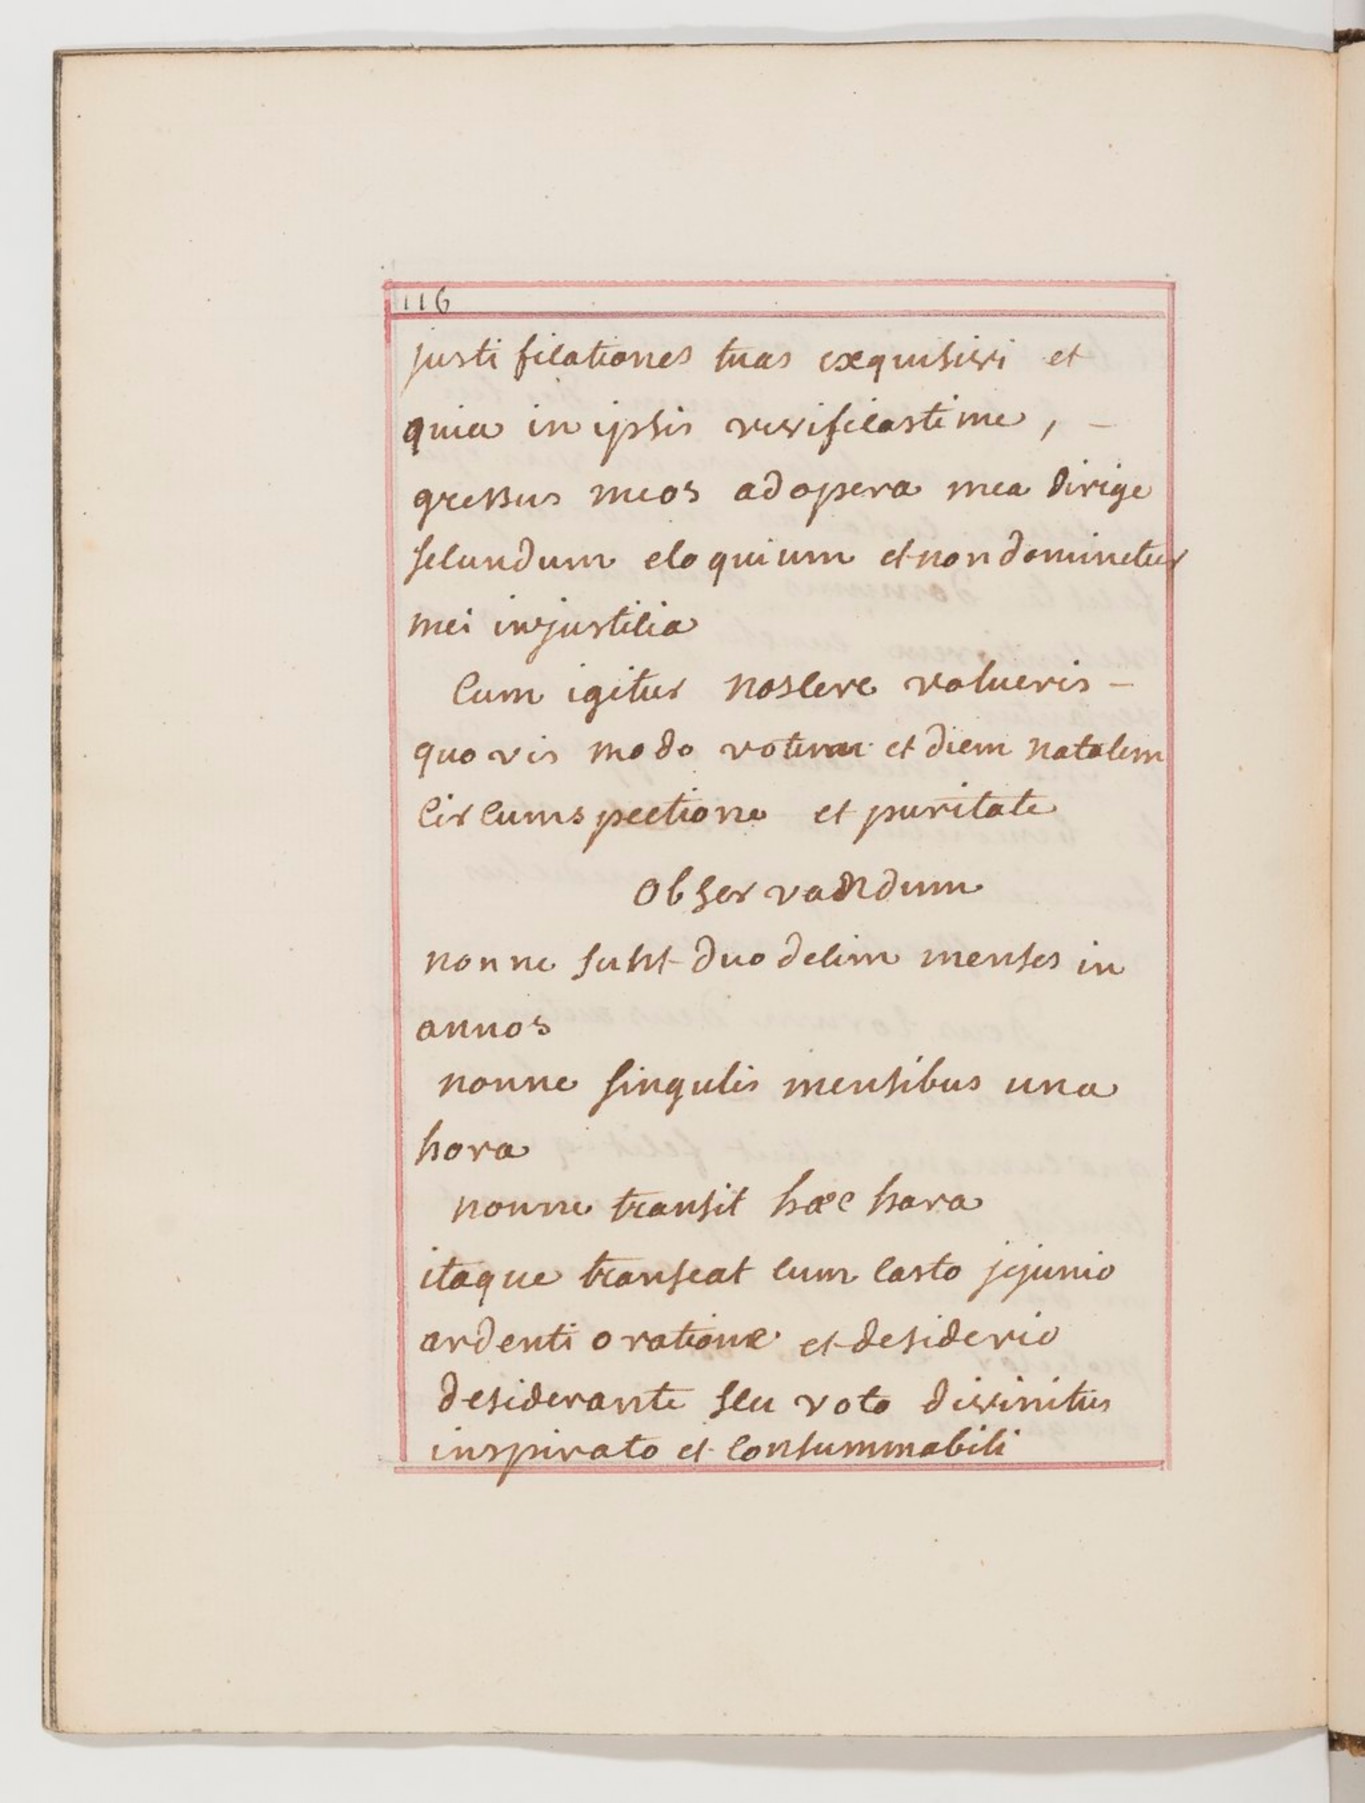 116
justi ficationes tuas exquisivi et
quia in ipsis vivificasti me, –
gressus meos ad opera mea dirige
secundum elo quium et non dominetur
mei injustitia
Cum igitur noscere volueris –
quo vis modo votum et diem natalem
Circumspectione et puritate
Observandum
nonne sunt duodecim menses in
annos
nonne singulis mensibus una
hora
nonne transit hæc hora
itaque transeat cum casto jejunio
ardenti oratione et desiderio
desiderante seu voto divinitus
inspirato et consummabili